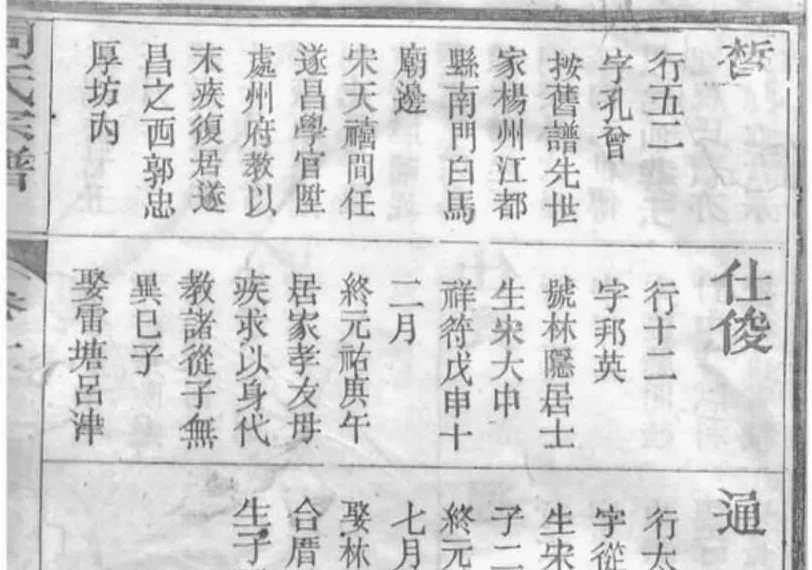 晳
行五二
字孔曾
按舊譜先世
家楊州江都
縣南門白馬
廟邊
宋天禧間任
遂昌學官陞
處州府教以
末疾復居遂
昌之西郭忠
厚坊内
仕俊
行十二
字邦英
號林隱居士
生宋大中
祥符戊申十
二月
終元祐庚午
居家孝友母
疾求以身代
教諸從子無
異巳子
娶雷塘呂津
通
行太
字從
生宋
子二
終元
七月
娶林
合厝
生子
周氏宗譜